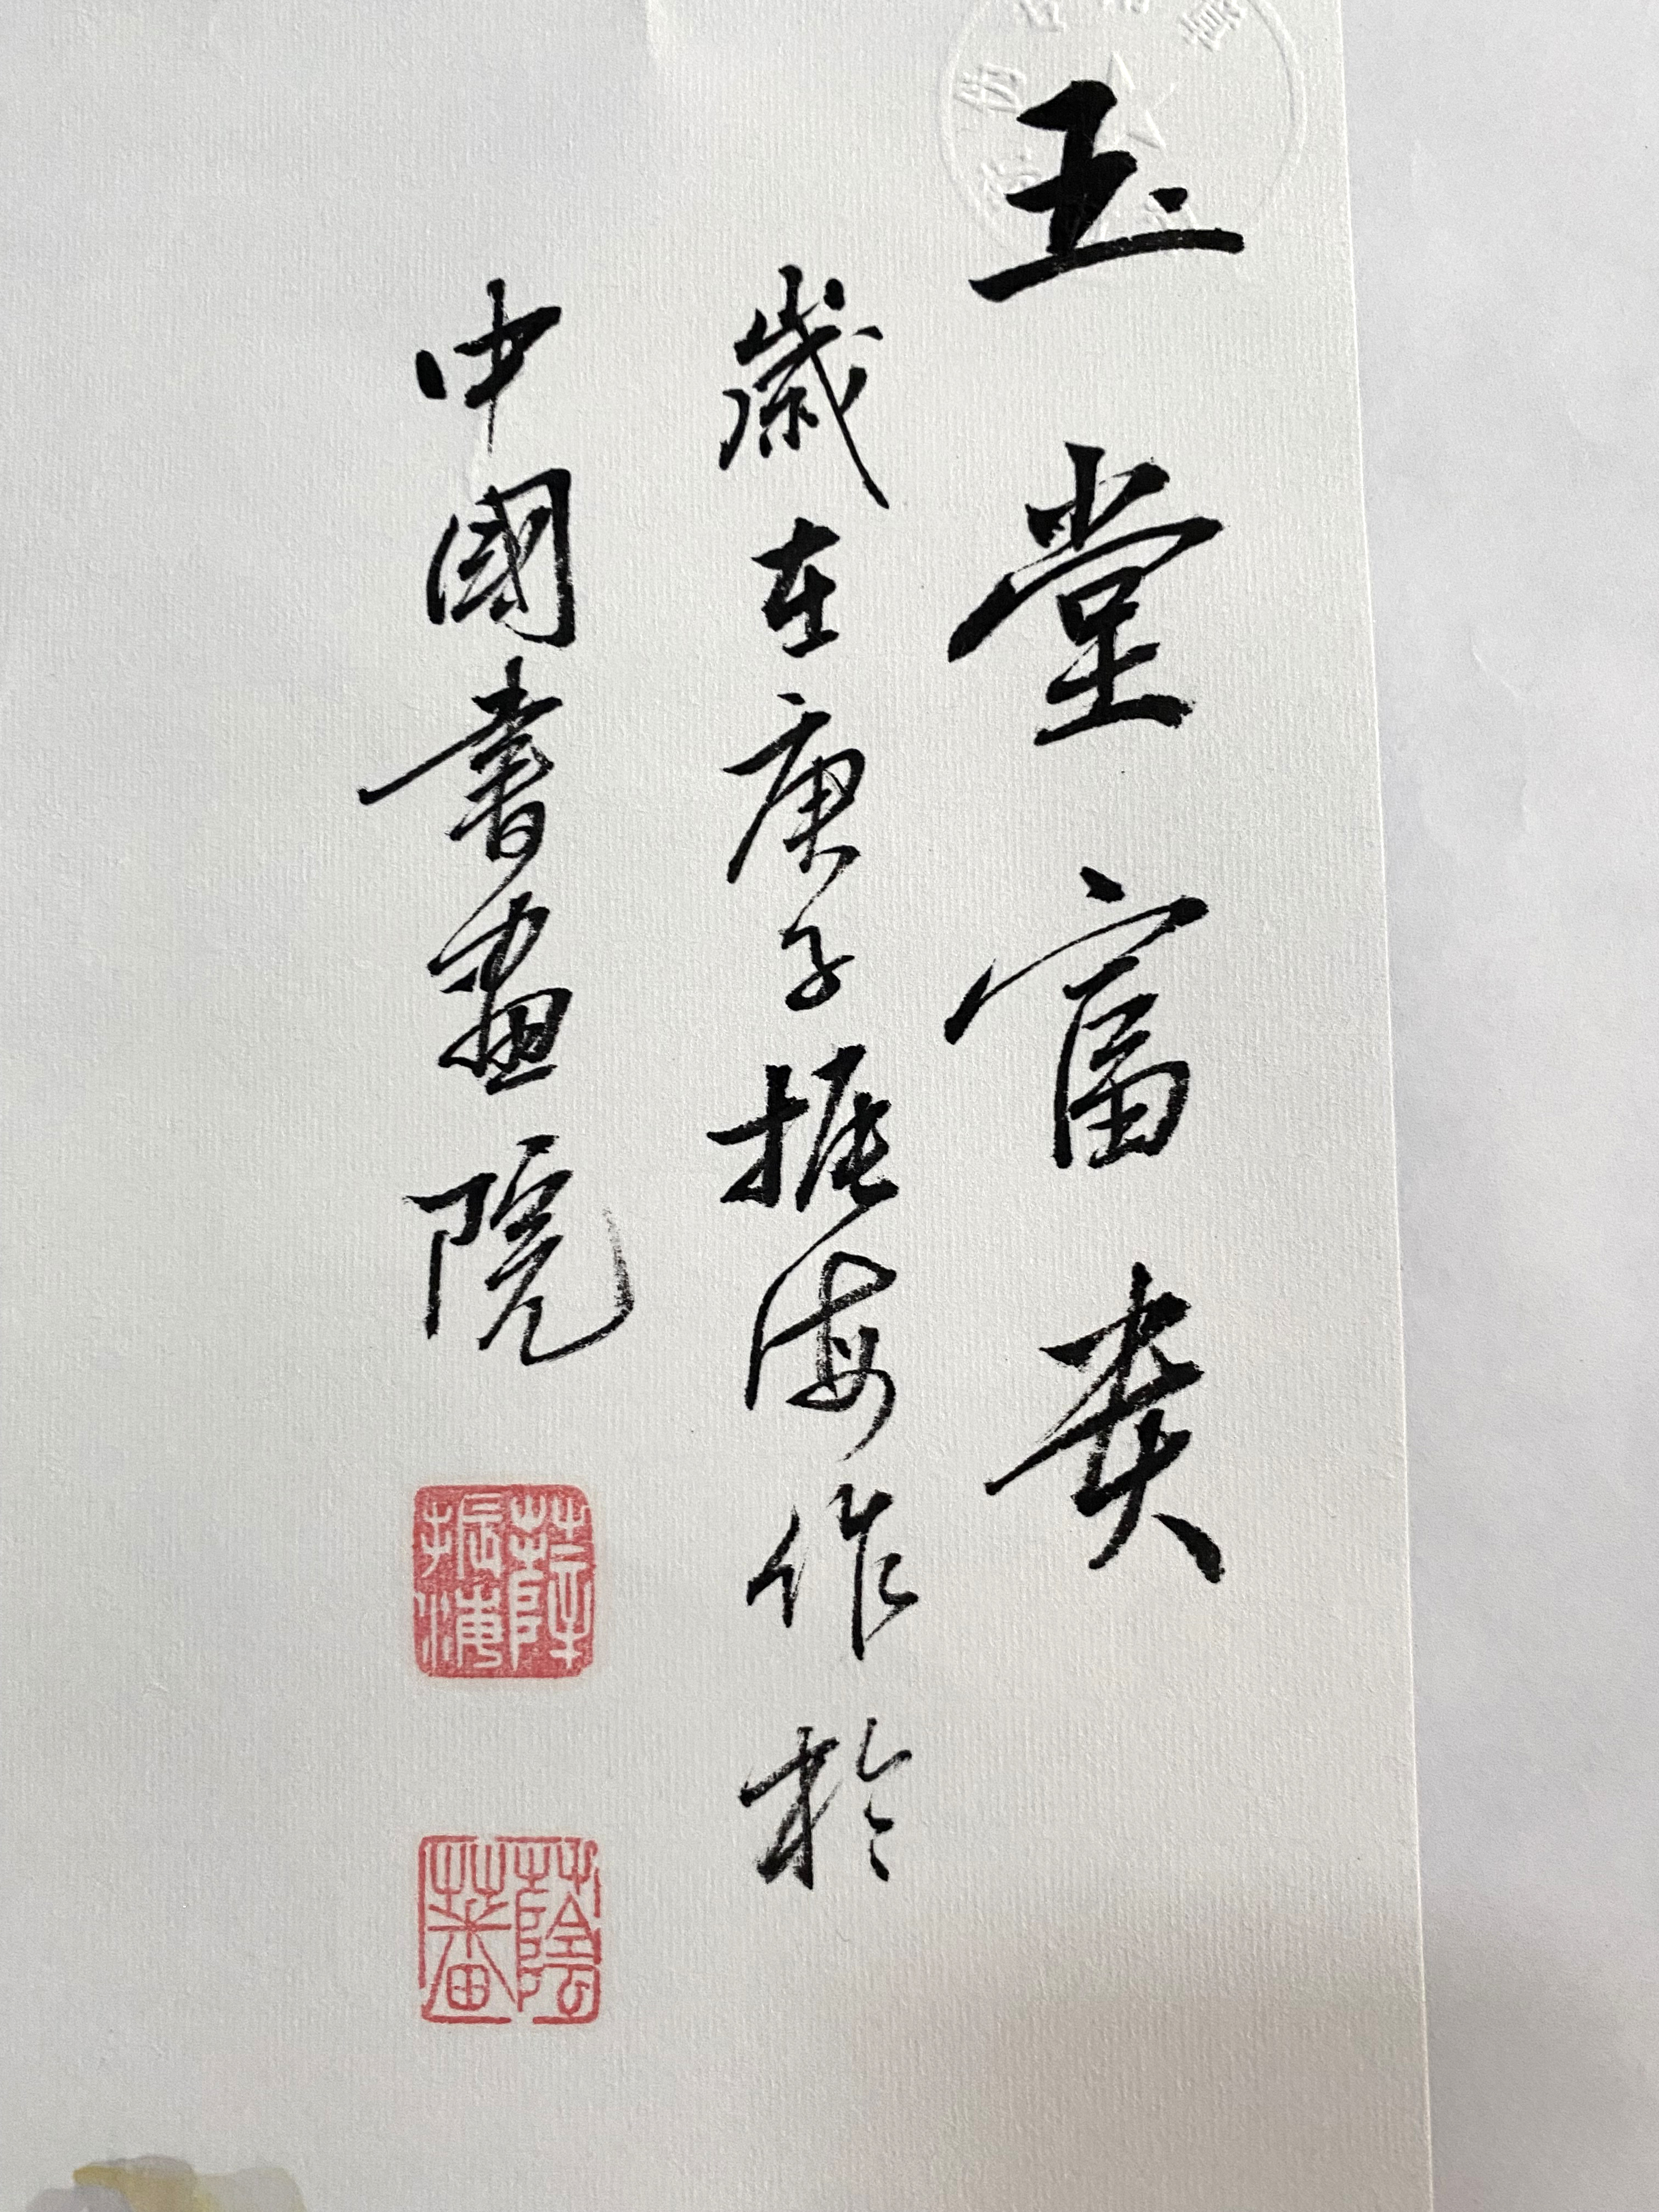 玉堂富贵
歲在庚子振海作於
中國書畫院